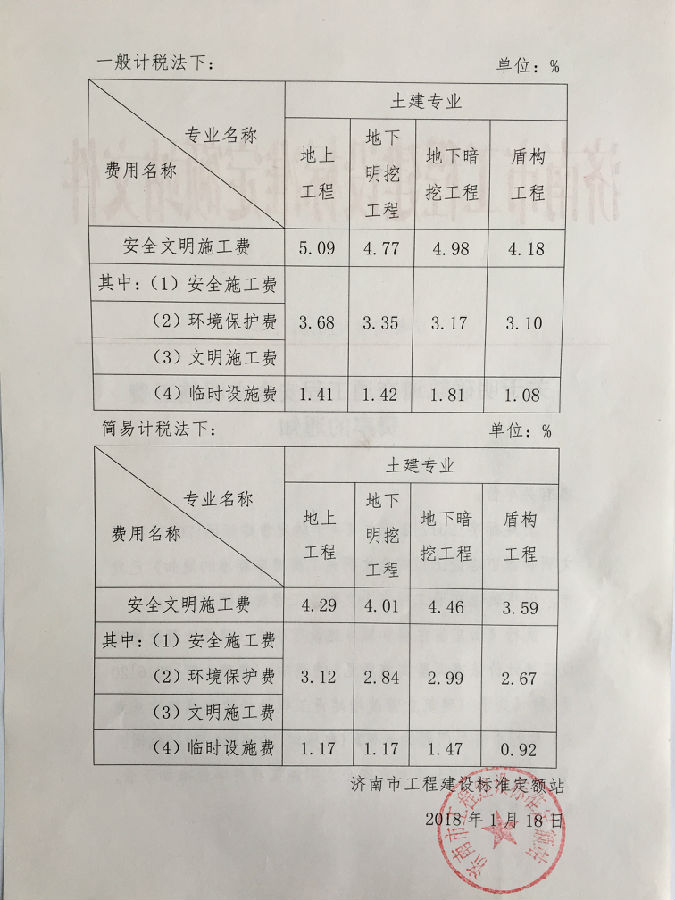 一般计税法下： 单位：%
土建专业
专业名称
费用名称
地上工程 地下明挖工程 地下暗挖工程 盾构工程
安全文明施工费 5.09 4.77 4.98 4.18
其中：（1）安全施工费
（2）环境保护费 3.68 3.35 3.17 3.10
（3）文明施工费
（4）临时设施费 1.41 1.42 1.81 1.08
简易计税法下： 单位：%
土建专业
专业名称
费用名称
地上工程 地下明挖工程 地下暗挖工程 盾构工程
安全文明施工费 4.29 4.01 4.46 3.59
其中：（1）安全施工费
（2）环境保护费 3.12 2.84 2.99 2.67
（3）文明施工费
（4）临时设施费 1.17 1.17 1.47 0.92
济南市工程建设标准定额站
2018年1月18日
济南市工程建设标准定额站